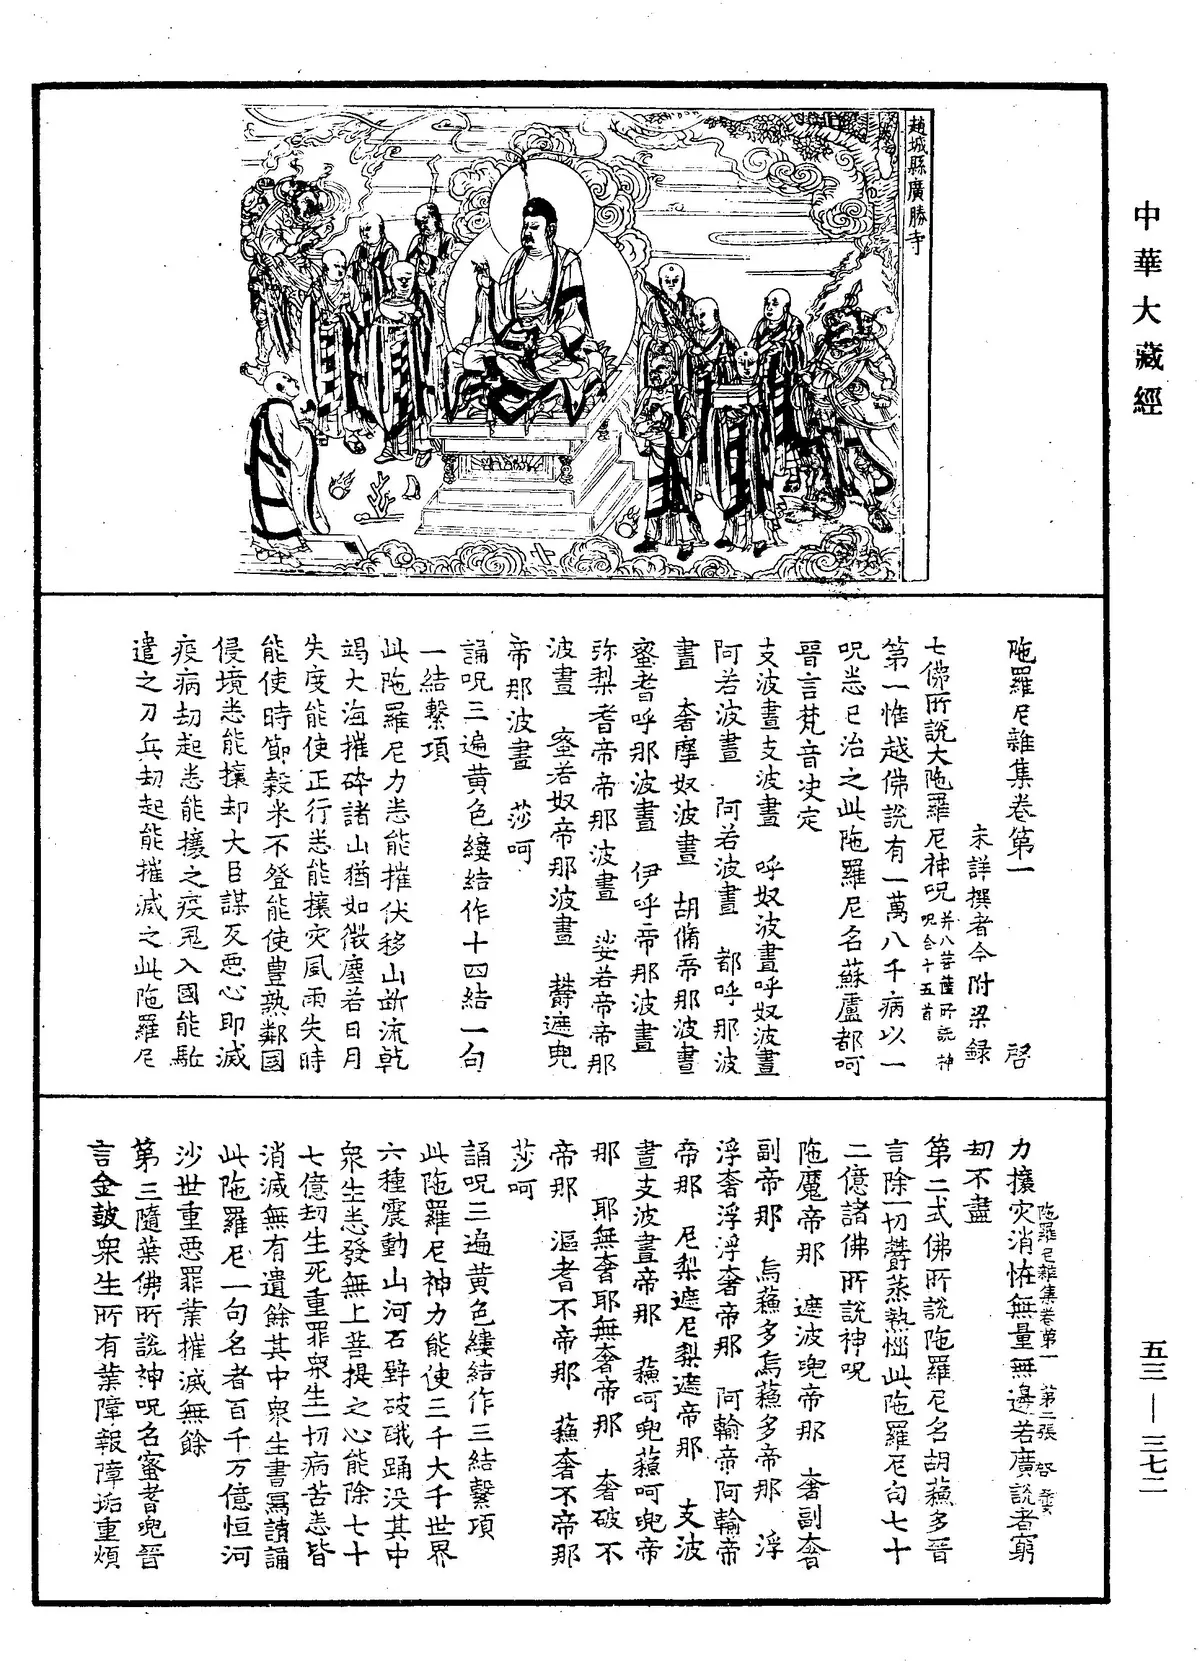 中華大藏經
趙城縣廣勝寺
陁羅尼雜集卷第一　啓
未詳撰者今附梁録
七佛所說大陁羅尼神呪并八菩薩所說神呪合十五首
第一惟越佛說有一萬八千病以一
呪悉已治之此陁羅尼名蘇盧都呵
晉言梵音决定
支波晝支波晝　呼奴波晝呼奴波晝
阿若波晝　阿若波晝　都呼那波
晝　奢摩奴波晝　胡脩帝那波晝
蜜耆呼那波晝　伊呼帝那波晝
弥梨耆帝帝那波晝　娑若帝帝那
波晝　蜜若奴帝那波晝　欝遮兜
帝那波晝　莎呵
誦呪三遍黄色縷結作十四結一句
一結繫項
此陁羅尼力悉能摧伏移山斷流乾
竭大海摧碎諸山猶如微塵若日月
失度能使正行悉能攘灾風雨失時
能使時節穀米不登能使豊熟鄰國
侵境悉能攘却大臣謀反惡心即滅
疫病刧起悉能攘之疫鬼入國能駈
遣之刀兵刧起能摧滅之此陁羅尼
陁羅尼雜集卷第一　第二張　啓
力攘灾消恠無量無邊若廣說者窮
刧不盡
第二式佛所說陁羅尼名胡蘓多晉
言除一切欝蒸熱惱此陁羅尼句七十
二億諸佛所說神呪
陁魔帝那　遮波兜帝那　奢副奢
副帝那　烏蘓多烏蘓多帝那　浮
浮奢浮浮奢帝那　阿輸帝阿輸帝
帝那　尼梨遮尼梨遮帝那　支波
晝支波晝帝那　蘓呵兜蘓呵兜帝
那　耶無奢耶無奢帝那　奢破不
帝那　漚耆不帝那　蘓奢不帝那
莎呵
誦呪三遍黄色縷結作三結繫項
此陁羅尼神力能使三千大千世界
六種震動山河石壁破碎踊没其中
衆生悉發無上菩提之心能除七十
七億刧生死重罪衆生一切病苦悉皆
消滅無有遺餘其中衆生書寫讀誦
此陁羅尼一句名者百千万億恒河
沙世重惡罪業摧滅無餘
第三隨葉佛所說神呪名蜜耆兜晉
言金鼓衆生所有業障報障垢重煩
五三—三七二